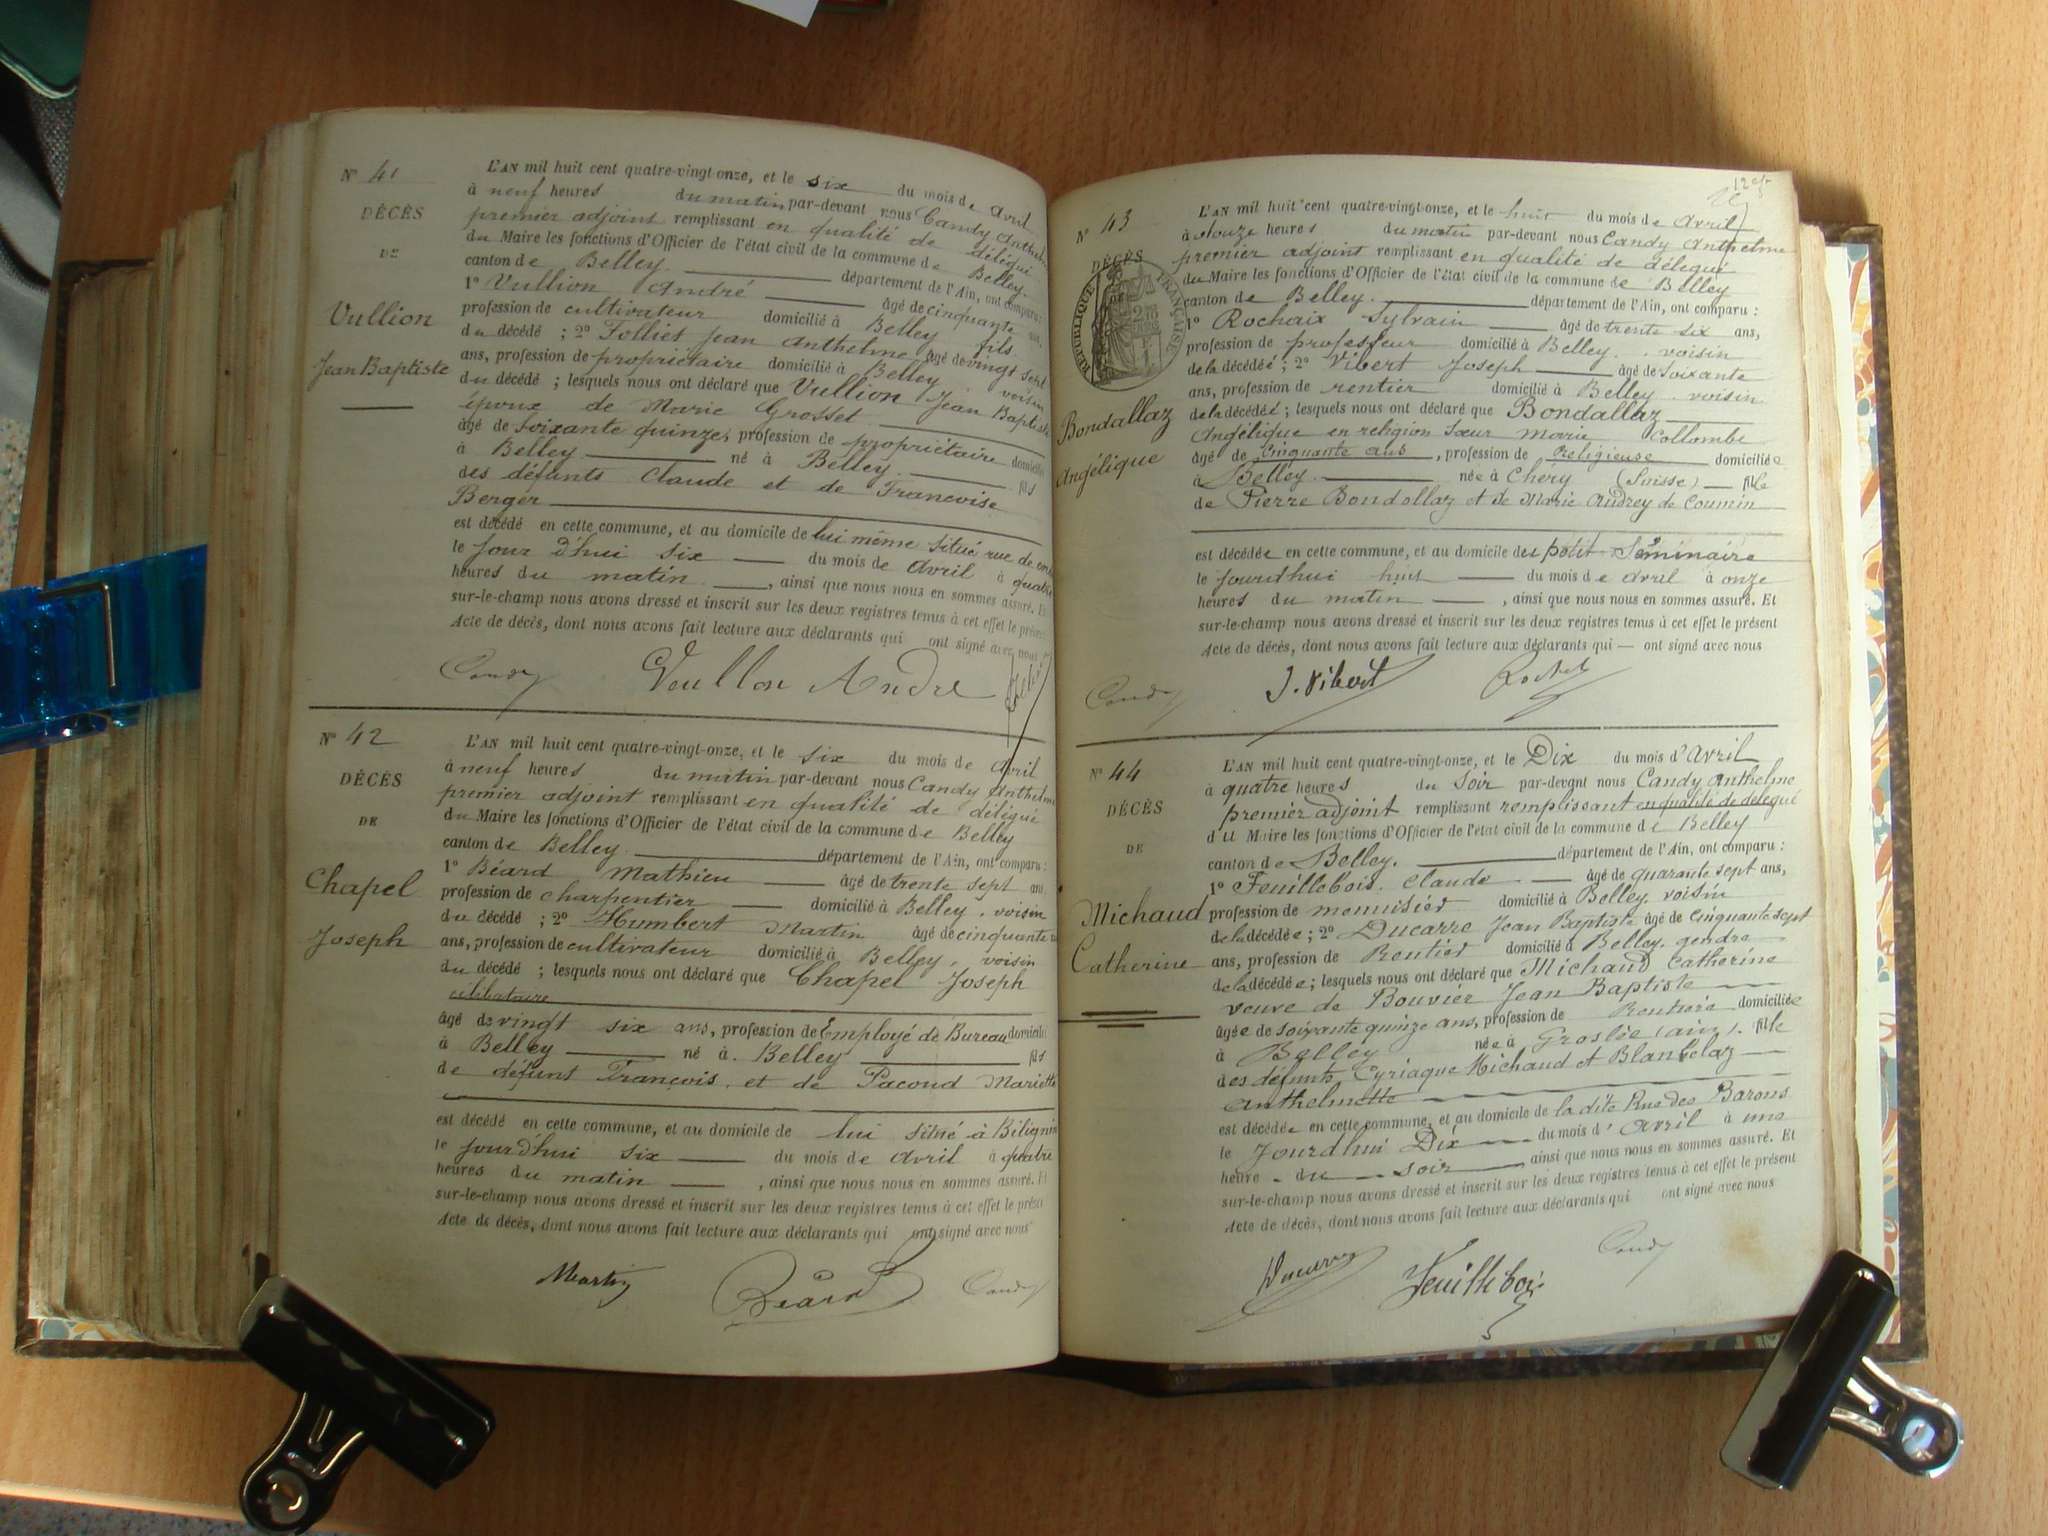 N° 41
DÉCÈS
DE
Vullion
Jean Baptiste
L'AN mil huit cent quatre-vingt-onze, et le six du mois de Avril
à neuf heures du matin par-devant nous Candy Anthelme
premier adjoint remplissant en qualité de délégué
du Maire les fonctions d'Officier de l'état civil de la commune de Belley.
canton de Belley. département de l'Ain, ont comparu :
1° Vullion André âgé de cinquante ans,
profession de cultivateur domicilié à Belley fils
du décédé ; 2° Folliet Jean Anthelme âgé de vingt sept
ans, profession de propriétaire domicilié à Belley. voisin
du décédé ; lesquels nous ont déclaré que Vullion Jean Baptiste
époux de Marie Grosset
âgé de soixante quinze, profession de propriétaire domicilié
à Belley né à Belley. fils
des défunts Claude et de Francoise
Berger
est décédé en cette commune, et au domicile de lui même situé rue de
le jour d'hui six du mois de Avril à quatre
heures du matin , ainsi que nous nous en sommes assuré. Et
sur-le-champ nous avons dressé et inscrit sur les deux registres tenus à cet effet le présent
Acte de décès, dont nous avons fait lecture aux déclarants qui ont signé avec nous
Candy Veullon André
N° 42
DÉCÈS
DE
Chapel
Joseph
L'AN mil huit cent quatre-vingt-onze, et le six du mois de Avril
à neuf heures du matin par-devant nous Candy Anthelme
premier adjoint remplissant en qualité de délégué
du Maire les fonctions d'Officier de l'état civil de la commune de Belley
canton de Belley. département de l'Ain, ont comparu :
1° Béard Mathieu âgé de trente sept ans,
profession de charpentier domicilié à Belley. voisin
du décédé ; 2° Humbert Martin âgé de cinquante
ans, profession de cultivateur domicilié à Belley. voisin
du décédé ; lesquels nous ont déclaré que Chapel Joseph
célibataire
âgé de vingt six ans, profession de Employé de Bureau domicilié
à Belley né à Belley fils
de défunt François et de Pacoud Mariette
est décédé en cette commune, et au domicile de lui situé à Bilignin
le jourd'hui six du mois de Avril à quatre
heures du matin , ainsi que nous nous en sommes assuré. Et
sur-le-champ nous avons dressé et inscrit sur les deux registres tenus à cet effet le présent
Acte de décès, dont nous avons fait lecture aux déclarants qui ont signé avec nous
Martin Béard Candy
N° 43
DÉCÈS
DE
RÉPUBLIQUE FRANÇAISE
Bondallaz
Angélique
L'AN mil huit cent quatre-vingt-onze, et le huit du mois de Avril
à douze heures du matin par-devant nous Candy Anthelme
premier adjoint remplissant en qualité de délégué
du Maire les fonctions d'Officier de l'état civil de la commune de Belley
canton de Belley. département de l'Ain, ont comparu :
1° Rochaix Sylvain âgé de trente six ans,
profession de professeur domicilié à Belley. voisin
de la décédée ; 2° Vibert Joseph âgé de soixante
ans, profession de rentier domicilié à Belley. voisin
de la décédée ; lesquels nous ont déclaré que Bondallaz
Angélique en religion Sœur Marie Collombe
âgé de cinquante ans , profession de Religieuse domiciliée
à Belley. née à Chéry (Suisse) fille
de Pierre Bondollaz et de Marie Audrey de Coumin
est décédée en cette commune, et au domicile de petit Séminaire
le jourd'hui huit du mois de Avril à onze
heures du matin , ainsi que nous nous en sommes assuré. Et
sur-le-champ nous avons dressé et inscrit sur les deux registres tenus à cet effet le présent
Acte de décès, dont nous avons fait lecture aux déclarants qui — ont signé avec nous
Candy J. Vibert
N° 44
DÉCÈS
DE
Michaud
Catherine
L'AN mil huit cent quatre-vingt-onze, et le Dix du mois d'Avril
à quatre heures du Soir par-devant nous Candy Anthelme
premier adjoint remplissant remplissant en qualité de délegué
du Maire les fonctions d'Officier de l'état civil de la commune de Belley
canton de Belley. département de l'Ain, ont comparu :
1° Feuillebois Claude âgé de quarante sept ans,
profession de menuisier domicilié à Belley. voisin
de la décédée ; 2° Ducarre Jean Baptiste âgé de cinquante sept
ans, profession de Rentier domicilié à Belley. gendre
de la décédée ; lesquels nous ont déclaré que Michaud Catherine
veuve de Bouvier Jean Baptiste
âgée de soixante quinze ans, profession de Rentière domiciliée
à Belley née à Groslée (ain). fille
des défunts Cyriaque Michaud et
Anthelmette
est décédée en cette commune, et au domicile de la dite Rue des Barons
le Jourd'hui Dix du mois d'Avril à une
heure du soir ainsi que nous nous en sommes assuré. Et
sur-le-champ nous avons dressé et inscrit sur les deux registres tenus à cet effet le présent
Acte de décès, dont nous avons fait lecture aux déclarants qui ont signé avec nous
Ducarre Feuillebois Candy